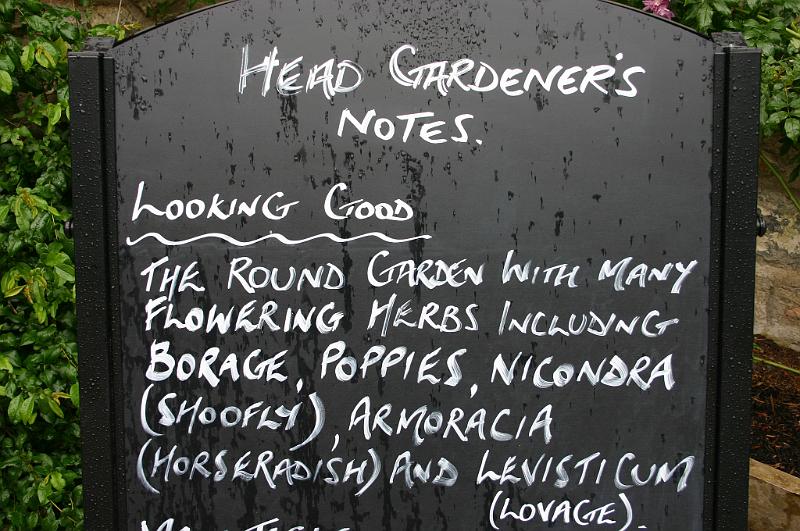 HEAD GARDENER'S
NOTES.
LOOKING GOOD
THE ROUND GARDEN WITH MANY
FLOWERING HERBS INCLUDING
BORAGE, POPPIES, NICONDRA
(SHOOFLY), ARMORACIA
(HORSERADISH) AND LEVISTICUM
(LOVAGE).